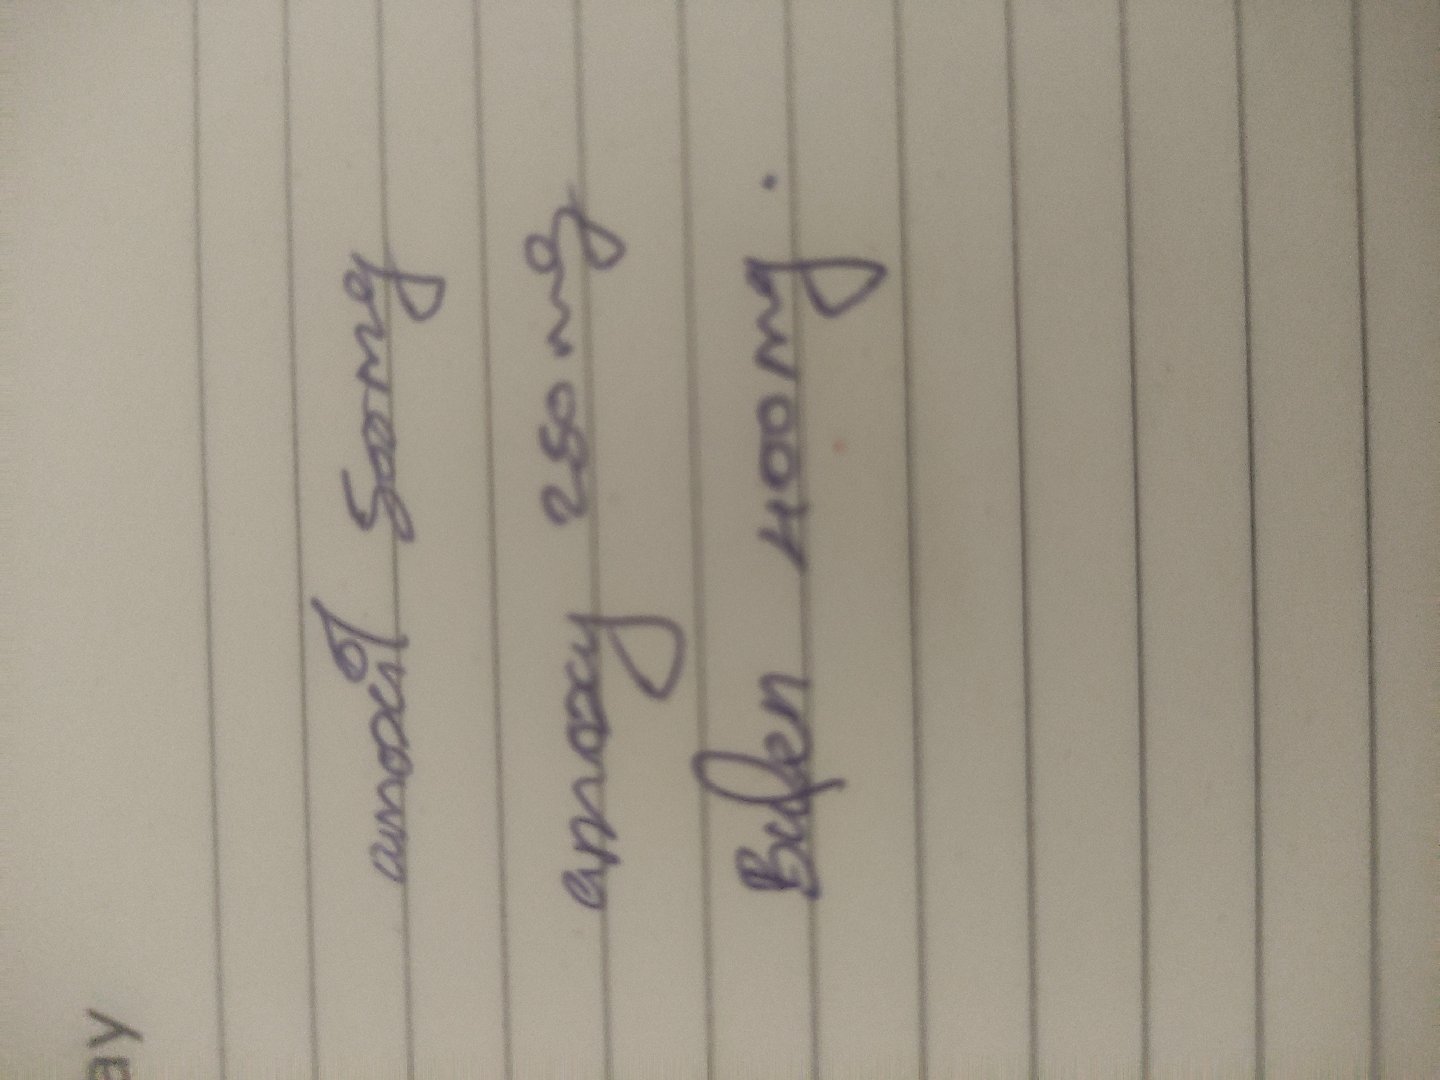 ay
amoxil 500mg
amoxy 250mg
Bufen 400mg.